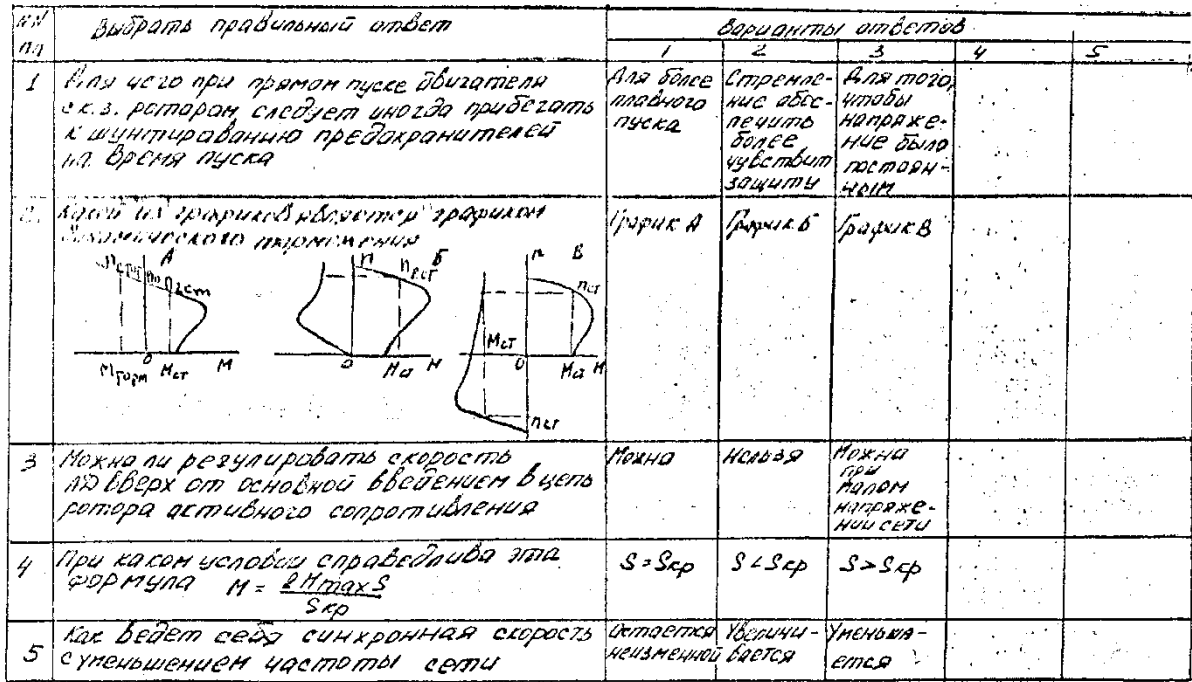 NN Выбрать правильный ответ Варианты ответов
пп 1 2 3 4 5
1 Для чего при прямом пуске двигателя
с к.з. ротором следует иногда прибегать
к шунтированию предохранителей
на время пуска
Для более
плавного
пуска
Стремле-
ние обес-
печить
более
чувствит
защиту
Для того,
чтобы
напряже-
ние было
постоян-
ным
2. Какой из графиков является графиком
торможения
График А График Б График В
А n₀ n2ст
0 Mторм Mст М
n Б nрст
0 Mст М
n В nст
Mст 0 Mст М
nст
3 Можно ли регулировать скорость
АД вверх от основной введением в цепь
ротора активного сопротивления
Можно
Нельзя
Можно
при
малом
напряже-
нии сети
4 При каком условии справедлива эта
формула M = 2MmaxS
Sкр
S = Sкр S < Sкр S > Sкр
5 Как ведет себя синхронная скорость
с уменьшением частоты сети
Остается
неизменной
Увеличи-
вается
Уменьша-
ется